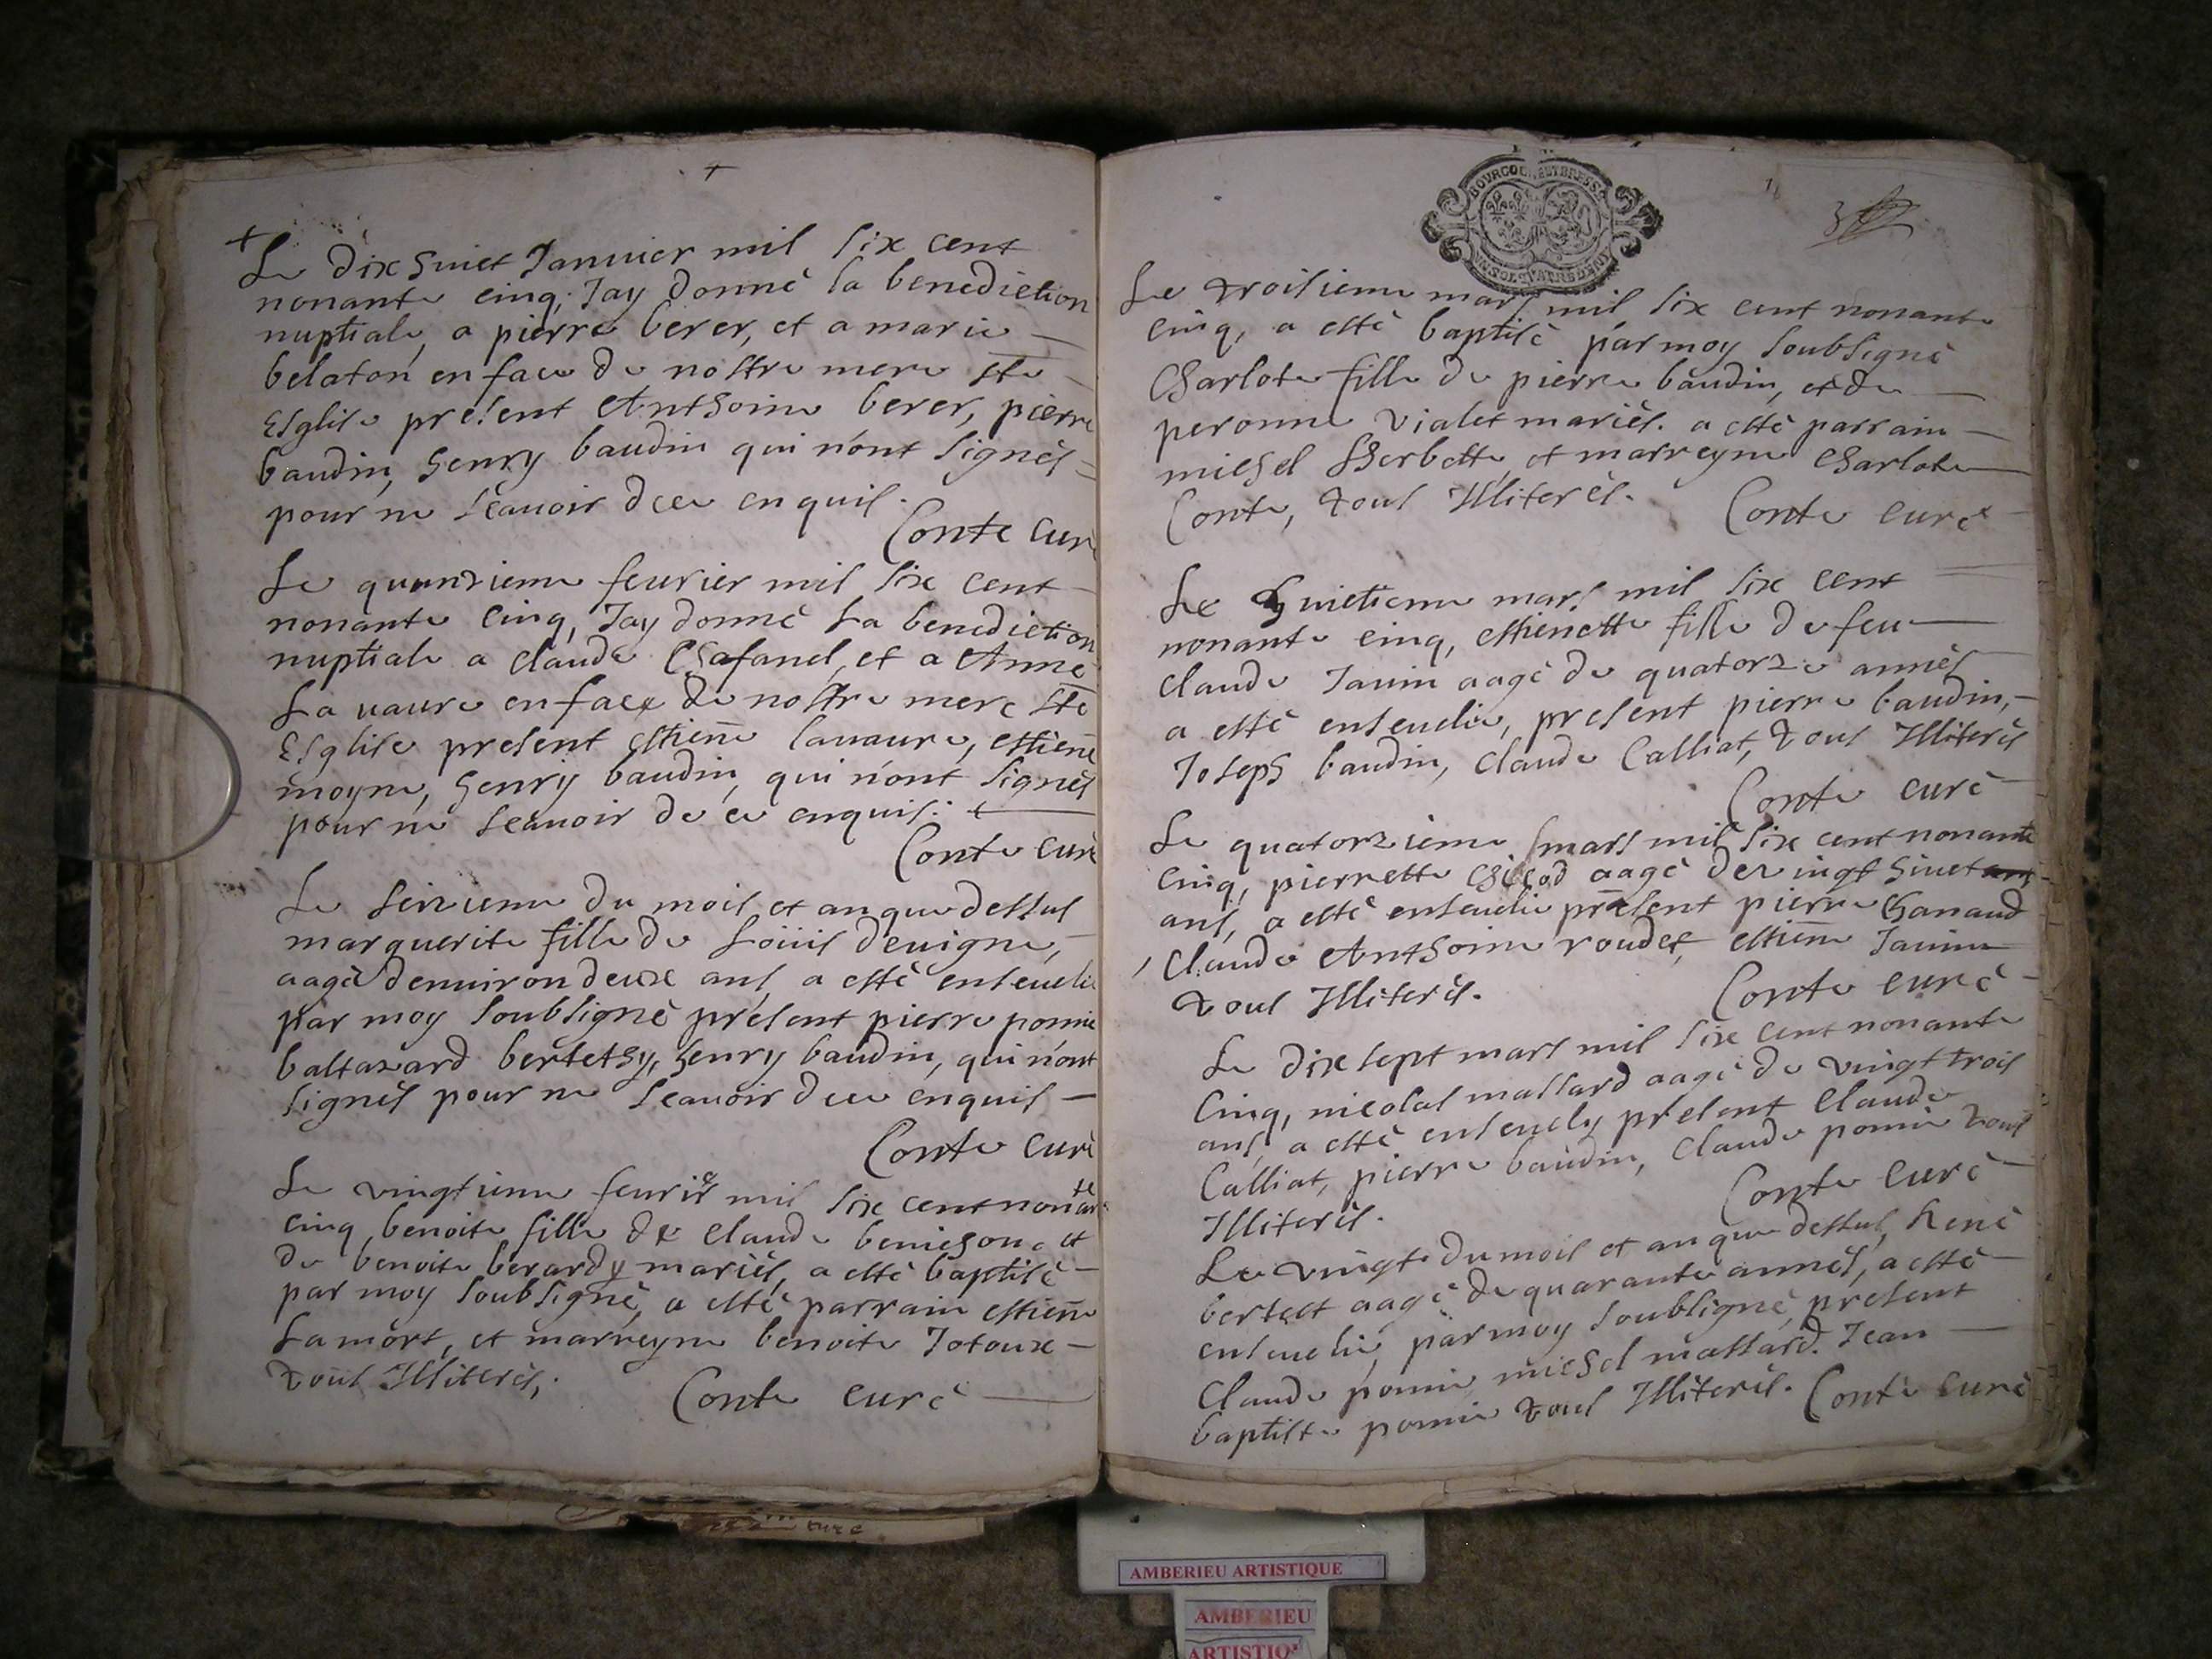 +
+
Le dix huict Januier mil six cent
nonante cinq, Jay donné la benediction
nuptiale, a pierre berer, et a marie
belaton en face de nostre mere ste
Esglise présent Anthoine berer, pierre
baudin, henry baudin qui n'ont signés
pour ne scauoir de ce enquis.
Conte curé
Le quinzieme feurier mil six cent
nonante cinq, Jay donné La benediction
nuptiale a claude Chafanel, et a Anne
La uaure en face de nostre mere ste
Esglise present estiene Lauaure, estiene
moyne, henry baudin, qui n'ont signés
pour ne scauoir de ce enquis.
Conte curé
Le seizieme du mois et an que dessus
marguerite fille de Loüis deuigne,
aagé denuiron deux ans, a esté enseuelie
par moy soubsigné présent pierre pomie
baltazard bertethy, henry baudin, qui n'ont
signés pour ne scauoir de ce enquis
Conte curé
Le vingtieme feurier mil six cent nonante
cinq, benoite fille de claude benichon, et
de benoite berardy mariés, a esté baptisé
par moy soubsigné, a esté parrain estiene
Lamort, et marreyne benoite Jotoux
tous Illiterés,
Conte curé
BOURGOGNE ET BRESSE
3
Le troisieme mars mil six cent nonante
cinq, a esté baptisé par moy soubsigné
Charlote fille de pierre baudin, et de
peronne vialet mariés. a esté parrain
michel Sherbette, et marreyne Charlote
Conte, tous Illiterés.
Conte curé
Le huictieme mars mil six cent
nonante cinq, estienette fille de feu
claude Janin aagé de quatorze annés
a esté enseuelie, present pierre baudin,
Joseph baudin, claude Calliat, tous Illiterés
Conte curé
Le quatorzieme mars mil six cent nonante
cinq, pierrette aagé de vingt huict
ans, a esté enseuelie présent pierre Ganaud
claude Anthoine roudet, estiene Janin
tous Illiterés.
Conte curé
Le dix sept mars mil six cent nonante
cinq, nicolas massard aagé de vingt trois
ans, a esté enseuely présent claude
Calliat, pierre baudin, claude pomie tous
Illiterés.
Conte curé
Le vingte du mois et an que dessus, René
bertet aagé de quarante annés, a esté
enseueli, par moy soubsigné, present
claude pomie michel massard. Jean
baptiste pomie tous Illiterés. Conte curé
curé
AMBERIEU ARTISTIQUE
AMBERIEU
ARTISTIQ